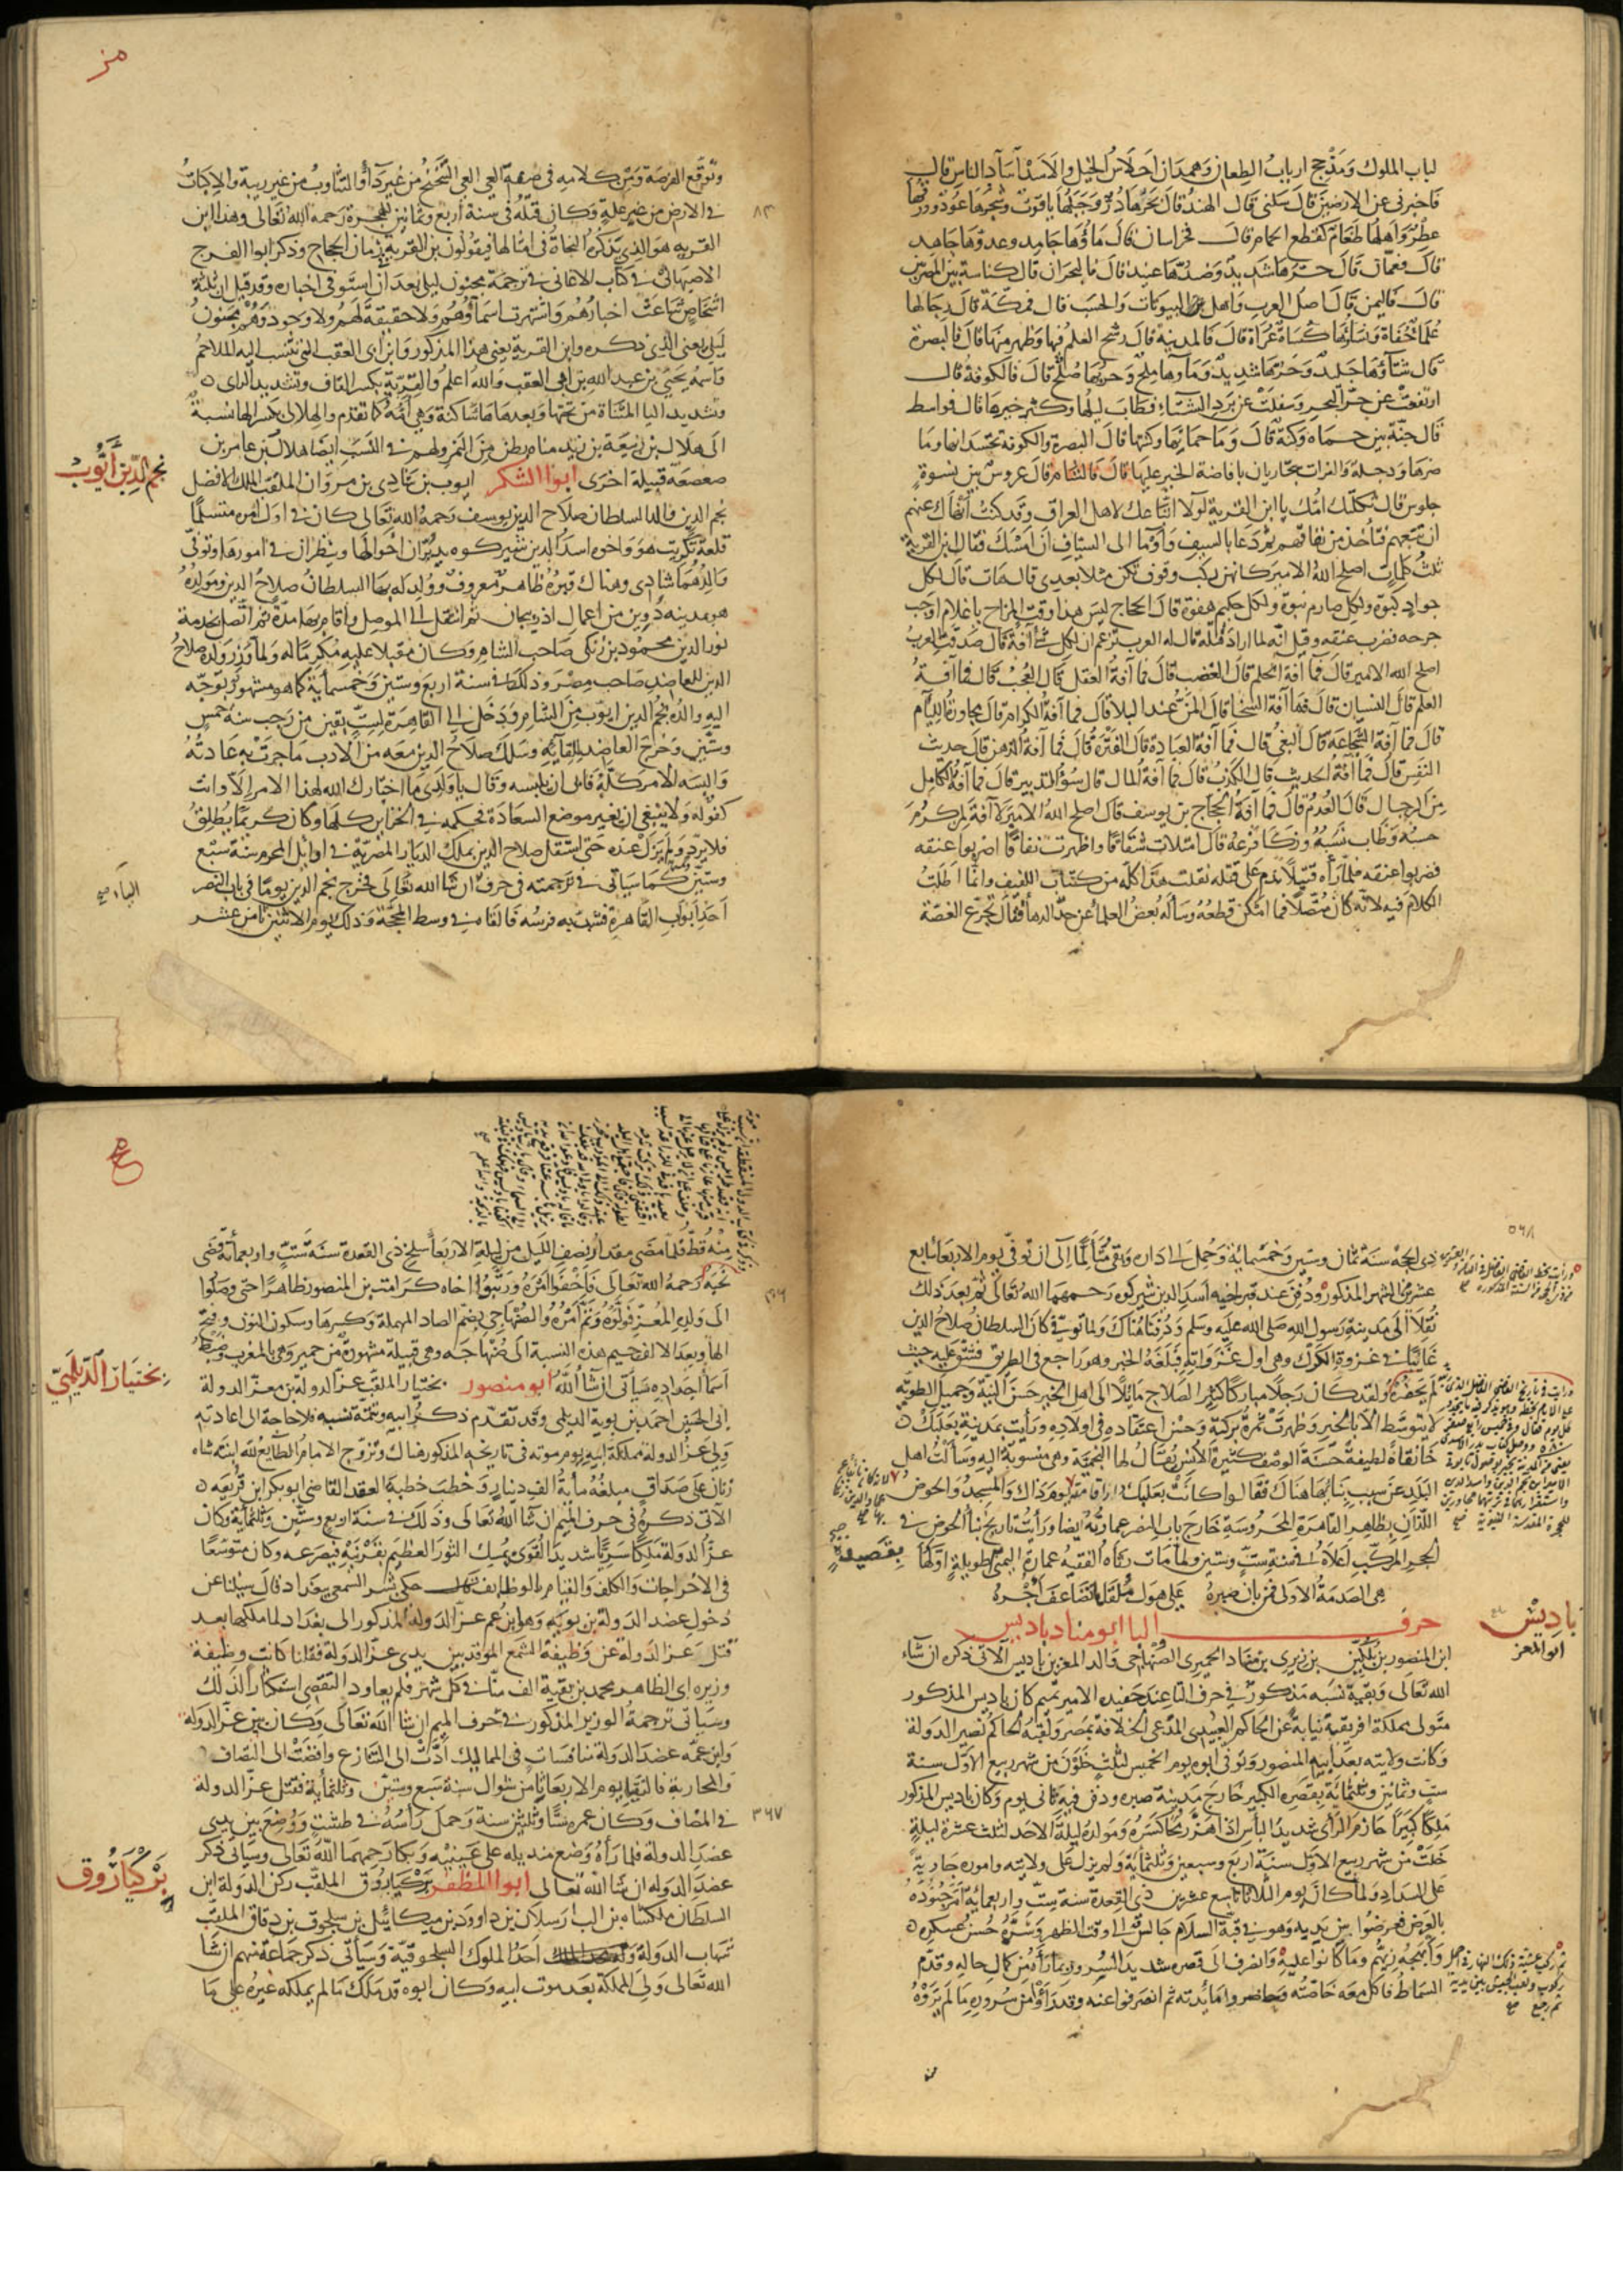 لباب الملوك ومذحج ارباب الطعان وهمدان احلاس الخيل والاسد آساد الناس قال
فاخبرني عن الارضين قال سلني قال الهند قال بحرها در وجبلها ياقوت وشجرها عود وورقها
عطر واهلها طغام كقطع الحمام قال فخراسان قال ماؤها جامد وعدوها جاهد
قال فعمان قال حرها شديد وصيدها عتيد قال فالبحران قال كناسة بين المصرين
قال فاليمن قال اصل العرب واهل البيوتات والحسب قال فمكة قال رجالها
علماء جفاة ونساؤها كساة عراة قال فالمدينة قال رسخ العلم فيها وظهر منها قال فالبصرة
قال شتاؤها جليد وحرها شديد وماؤها ملح وحربها صلح قال فالكوفة قال
ارتفعت عن حر البحر وسفلت عن برد الشتاء فطاب ليلها وكثر خيرها قال فواسط
قال جنة بين حماه وكنة قال وما حماتها وكنتها قال البصرة والكوفة تحسدانها وما
ضرها ودجلة والفرات يتجاريان بافاضة الخير عليها قال فالشام قال عروس بين نسوة
جلوس قال ثكلتك امك يا ابن القرية لولا اتباعك لاهل العراق وقد كنت انهاك عنهم
ان تتبعهم فتأخذ من نفاقهم ثم دعا بالسيف وأومأ الى السياف ان امسك فقال ابن القرية
ثلث كلمات اصلح الله الامير كانهن ركب وقوف تكن مثلا بعدي قال هات قال لكل
جواد كبوة ولكل صارم نبوة ولكل حكيم هفوة قال الحجاج ليس هذا وقت المزاح يا غلام اوجب
جرحه فضرب عنقه وقيل انه لما اراد قتله قال له العرب تزعم ان لكل شئ آفة قال صدقت العرب
اصلح الله الامير قال فما آفة الحلم قال الغضب قال فما آفة العقل قال العجب قال فما آفة
العلم قال النسيان قال فما آفة السخا قال المن عند البلا قال فما آفة الكرام قال مجاورة اللئام
قال فما آفة الشجاعة قال البغي قال فما آفة العبادة قال الفترة قال فما آفة الذهن قال حديث
النفس قال فما آفة الحديث قال الكذب قال فما آفة المال قال سوء التدبير قال فما آفة الكامل
من الرجال قال العدم قال فما آفة الحجاج بن يوسف قال اصلح الله الامير لا آفة لمن كرم
حسبه وطاب نسبه وزكا فرعه قال امتلات شقاقا واظهرت نفاقا اضربوا عنقه
فضربوا عنقه فلما رآه قتيلا ندم على قتله نقلت هذا كله من كتاب اللفيف وانما اطلت
الكلام فيه لانه كان متصلا فما امكن قطعه وسأله بعض العلما عن حد الدهاء فقال تجرع الغصة
وتوقع الفرصة ومن كلامه في صفة العي العي التنحنح من غير دآ والتثاوب من غير ريبة والاكباب
في الارض من غير علة وكان قتله في سنة اربع وثمانين للهجرة رحمه الله تعالى وهذا ابن
٨٣
القرية هو الذي يذكره النحاة في امثالها فيقولون ابن القرية زمان الحجاج وذكر ابو الفرج
الاصبهاني في كتاب الاغاني في ترجمة مجنون ليلى بعد ان استوفى اخباره وقد قيل ان ثلثة
اشخاص شاعت اخبارهم واشتهرت اسماؤهم ولا حقيقة لهم ولا وجود وهم مجنون
ليلى يعني الذي ذكره وابن القرية يعني هذا المذكور وابن ابي العقب التي تنسب اليه الملاحم
واسمه يحيى بن عبد الله بن ابي العقب والله اعلم والقرية بكسر القاف وتشديد الراى
وتشديد اليا المثناة من تحتها وبعدها هاء ساكنة وهي امه كما تقدم والهلالى بكسر الها نسبة
الى هلال بن ربيعة بن زيد مناه بطن من النمر ولهم في النسب ايضا هلال بن عامر بن
صعصعة قبيلة اخرى ابوا الشكر ايوب بن شادي بن مروان الملقب الملك الافضل
نجم الدين أيوب
نجم الدين والد السلطان صلاح الدين يوسف رحمه الله تعالى كان في اول امره متسلما
قلعة تكريت هو واخوه اسد الدين شيركوه يدبران احوالها وينظران في امورها وتوفي
والدهما شادي وهناك قبره ظاهر معروف وولد له بها السلطان صلاح الدين ومولده
هو بمدينه دوين من اعمال اذربيجان ثم انتقل الى الموصل واقام بها مدة ثم اتصل بخدمة
نور الدين محمود بن زنكي صاحب الشام وكان مقبلا عليه مكرما له ولما وزر ولده صلاح
الدين للعاضد صاحب مصر وذلك في سنة اربع وستين وخمسمأية كما هو مشهور توجه
اليه والده نجم الدين ايوب من الشام ودخل الى القاهرة لست بقين من رجب سنة خمس
وستين وخرج العاضد للقآيه وسلك صلاح الدين معه من الادب ما جرت به عادته
والبسه الامر كله فابى ان يلبسه وقال يا ولدي ما اختارك الله لهذا الامر الا وانت
كفؤ له ولا ينبغي ان نغير موضع السعادة فحكمه في الخزاين كلها وكان كريما يطلق
فلا يرد ولم يزل عنده حتى استقل صلاح الدين بملك الديار المصرية في اوائل المحرم سنة سبع
وستين كما سياتي في ترجمته في حرف ان شا الله تعالى فخرج نجم الدين يوما في باب النصر
الياء صح
احد ابواب القاهرة فشب به فرسه فالقاه في وسط المحجة وذلك يوم الاثنين ثامن عشر
٥٦٨
ذي الحجة سنة ثمان وستين وخمسمائة وحمل الى داره وبقي متألما الى ان توفي يوم الاربعا سابع
عشرى الشهر المذكور ودفن عند قبر اخيه اسد الدين شيركوه رحمهما الله تعالى ثم بعد ذلك
نقلا الى مدينة رسول الله صلى الله عليه وسلم ودفنا هناك ولما توفي كان السلطان صلاح الدين
غائبا في غزوة الكرك وهي اول غزواته فبلغه الخبر وهو راجع في الطريق فشق عليه حيث
لم يحضره ولقد كان رجلا مباركا كثير الصلاح مائلا الى اهل الخير حسن النية وجميل الطوية
لا يتوسط الا بالخير وظهرت ثمرة بركته وحسن اعتقاده في اولاده ورأيت بمدينة بعلبك
خانقاه لطيفة حسنة الوصف كثيرة الانس يقال لها النجمية وهي منسوبة اليه وسألت اهل
البلد عن سبب بنائها هناك فقالوا كانت بعلبك اذ ذاك والمسجد والحوض
اللذان بظاهر القاهرة المحروسة خارج باب النصر عمارته ايضا ورأيت تاريخ بنا الحوض في
الحجر المركب اعلاه في سنة ست وستين ولما مات رثاه الفقيه عمارة اليمني طويلة اولها
بقصيدة
هي الصدمة الاولى فمن بان صبره على هول ملقاه تضاعف اجره
حرف البا ابو مناد باديس
باديس
ابو المعز
ابن المنصور بن بلكين بن زيري بن مناد الحميري الصنهاجي والد المعز بن باديس الآتي ذكره ان شاء
الله تعالى وبقية نسبه مذكور في حرف التا عند حفيده الامير تميم كان باديس المذكور
متولى مملكة افريقية نيابة عن الحاكم العبيدي المدعي الخلافة بمصر ولقبه الحاكم نصير الدولة
وكانت ولايته بعد ابيه المنصور وتوفي ابوه يوم الخميس لثلث خلون من شهر ربيع الاول سنة
ست وثمانين وثلثمائة بقصره الكبير خارج مدينة صبره ودفن فيه ثاني يوم وكان باديس المذكور
ملكا كبيرا حازم الرأى شديد البأس اذا هز رمحا كسره ومولده ليلة الاحد لثلث عشرة ليلة
خلت من شهر ربيع الاول سنة اربع وسبعين وثلثمائة ولم يزل على ولايته واموره جارية
على السداد ولما كان يوم الثلاثا تاسع عشرين ذى القعدة سنة ست واربعمائة امر جنوده
بالعرض فعرضوا بين يديه وهو في قبة السلام جالس الى وقت الظهر وسره حسن عسكره
وأبهجه زيهم وما كانوا عليه وانصرف الى قصره شديد السرور بما رآه من كمال حاله وقدم
السماط فاكل معه خاصته وحاضروا مائدته ثم انصرفوا عنه وقد رأوا من سروره ما لم يروه
منه قط فلما مضى مقدار نصف الليل من ليلة الاربعا سلخ ذي القعدة سنة ست واربعمأئة قضى
نحبه رحمه الله تعالى فاخفوا امره ورتبوا اخاه كرامت بن المنصور ظاهرا حتى وصلوا
الى ولده المعز فولوه وتم امره والصنهاجي بضم الصاد المهملة وكسرها وسكون النون وفتح
الها وبعد الالف جيم هذه النسبة الى صنهاجه وهي قبيلة مشهورة من حمير وهي بالمغرب وضبط
اسما اجداده سيأتي ان شا الله ابو منصور بختيار الملقب عز الدولة بن معز الدولة
بختيار الديلمي
ابي الحسين احمد بن بويه الديلمي وقد تقدم ذكر ابيه وتتمة نسبه فلا حاجة الى اعادته
ولي عز الدولة مملكة ابيه يوم موته في تاريخه المذكور هناك وتزوج الامام الطائع لله ابنته شاه
زنان على صداق مبلغه مأية الف دينار وخطب خطبة العقد القاضي ابو بكر ابن قريعة
الآتي ذكره في حرف الميم ان شا الله تعالى وذلك في سنة اربع وستين وثلثمأية وكان
عز الدولة ملكا سريا شديد القوى يمسك الثور العظيم بقرنيه فيصرعه وكان متوسعا
في الاخراجات والكلف والقيام بالوظايف حكى بشر الشمعي ببغداد قال سئلنا عن
دخول عضد الدولة بن بويه وهو ابن عم عز الدولة المذكور الى بغداد لما ملكها بعد
قتل عز الدولة عن وظيفة الشمع الموقد بين يدي عز الدولة فقلنا كانت وظيفة
وزيره ابي الظاهر محمد بن بقية الف منا في كل شهر فلم يعاود التقصي استكثارا لذلك
وسيأتي ترجمة الوزير المذكور في حرف الميم ان شا الله تعالى وكان بين عز الدولة
وابن عمه عضد الدولة منافسات في الممالك ادت الى التنازع وافضت الى التصاف
والمحاربة فالتقيا يوم الاربعا ثامن شوال سنة سبع وستين وثلثمأية فقتل عز الدولة
٣٦٧
في المصاف وكان عمره ستا وثلثين سنة وحمل رأسه في طشت ووضع بين يدي
عضد الدولة فلما رآه وضع منديله على عينيه وبكا رحمهما الله تعالى وسيأتي ذكر
عضد الدولة ان شا الله تعالى ابوا المظفر بركياروق الملقب ركن الدولة ابن
بركياروق
السلطان ملكشاه بن الب ارسلان بن داوود بن ميكائيل بن سلجوق بن دقاق الملقب
شهاب الدولة احد الملوك السلجوقية وسيأتي ذكر جماعة منهم ان شا
الله تعالى ولي المملكة بعد موت ابيه وكان ابوه قد ملك ما لم يملكه غيره على ما